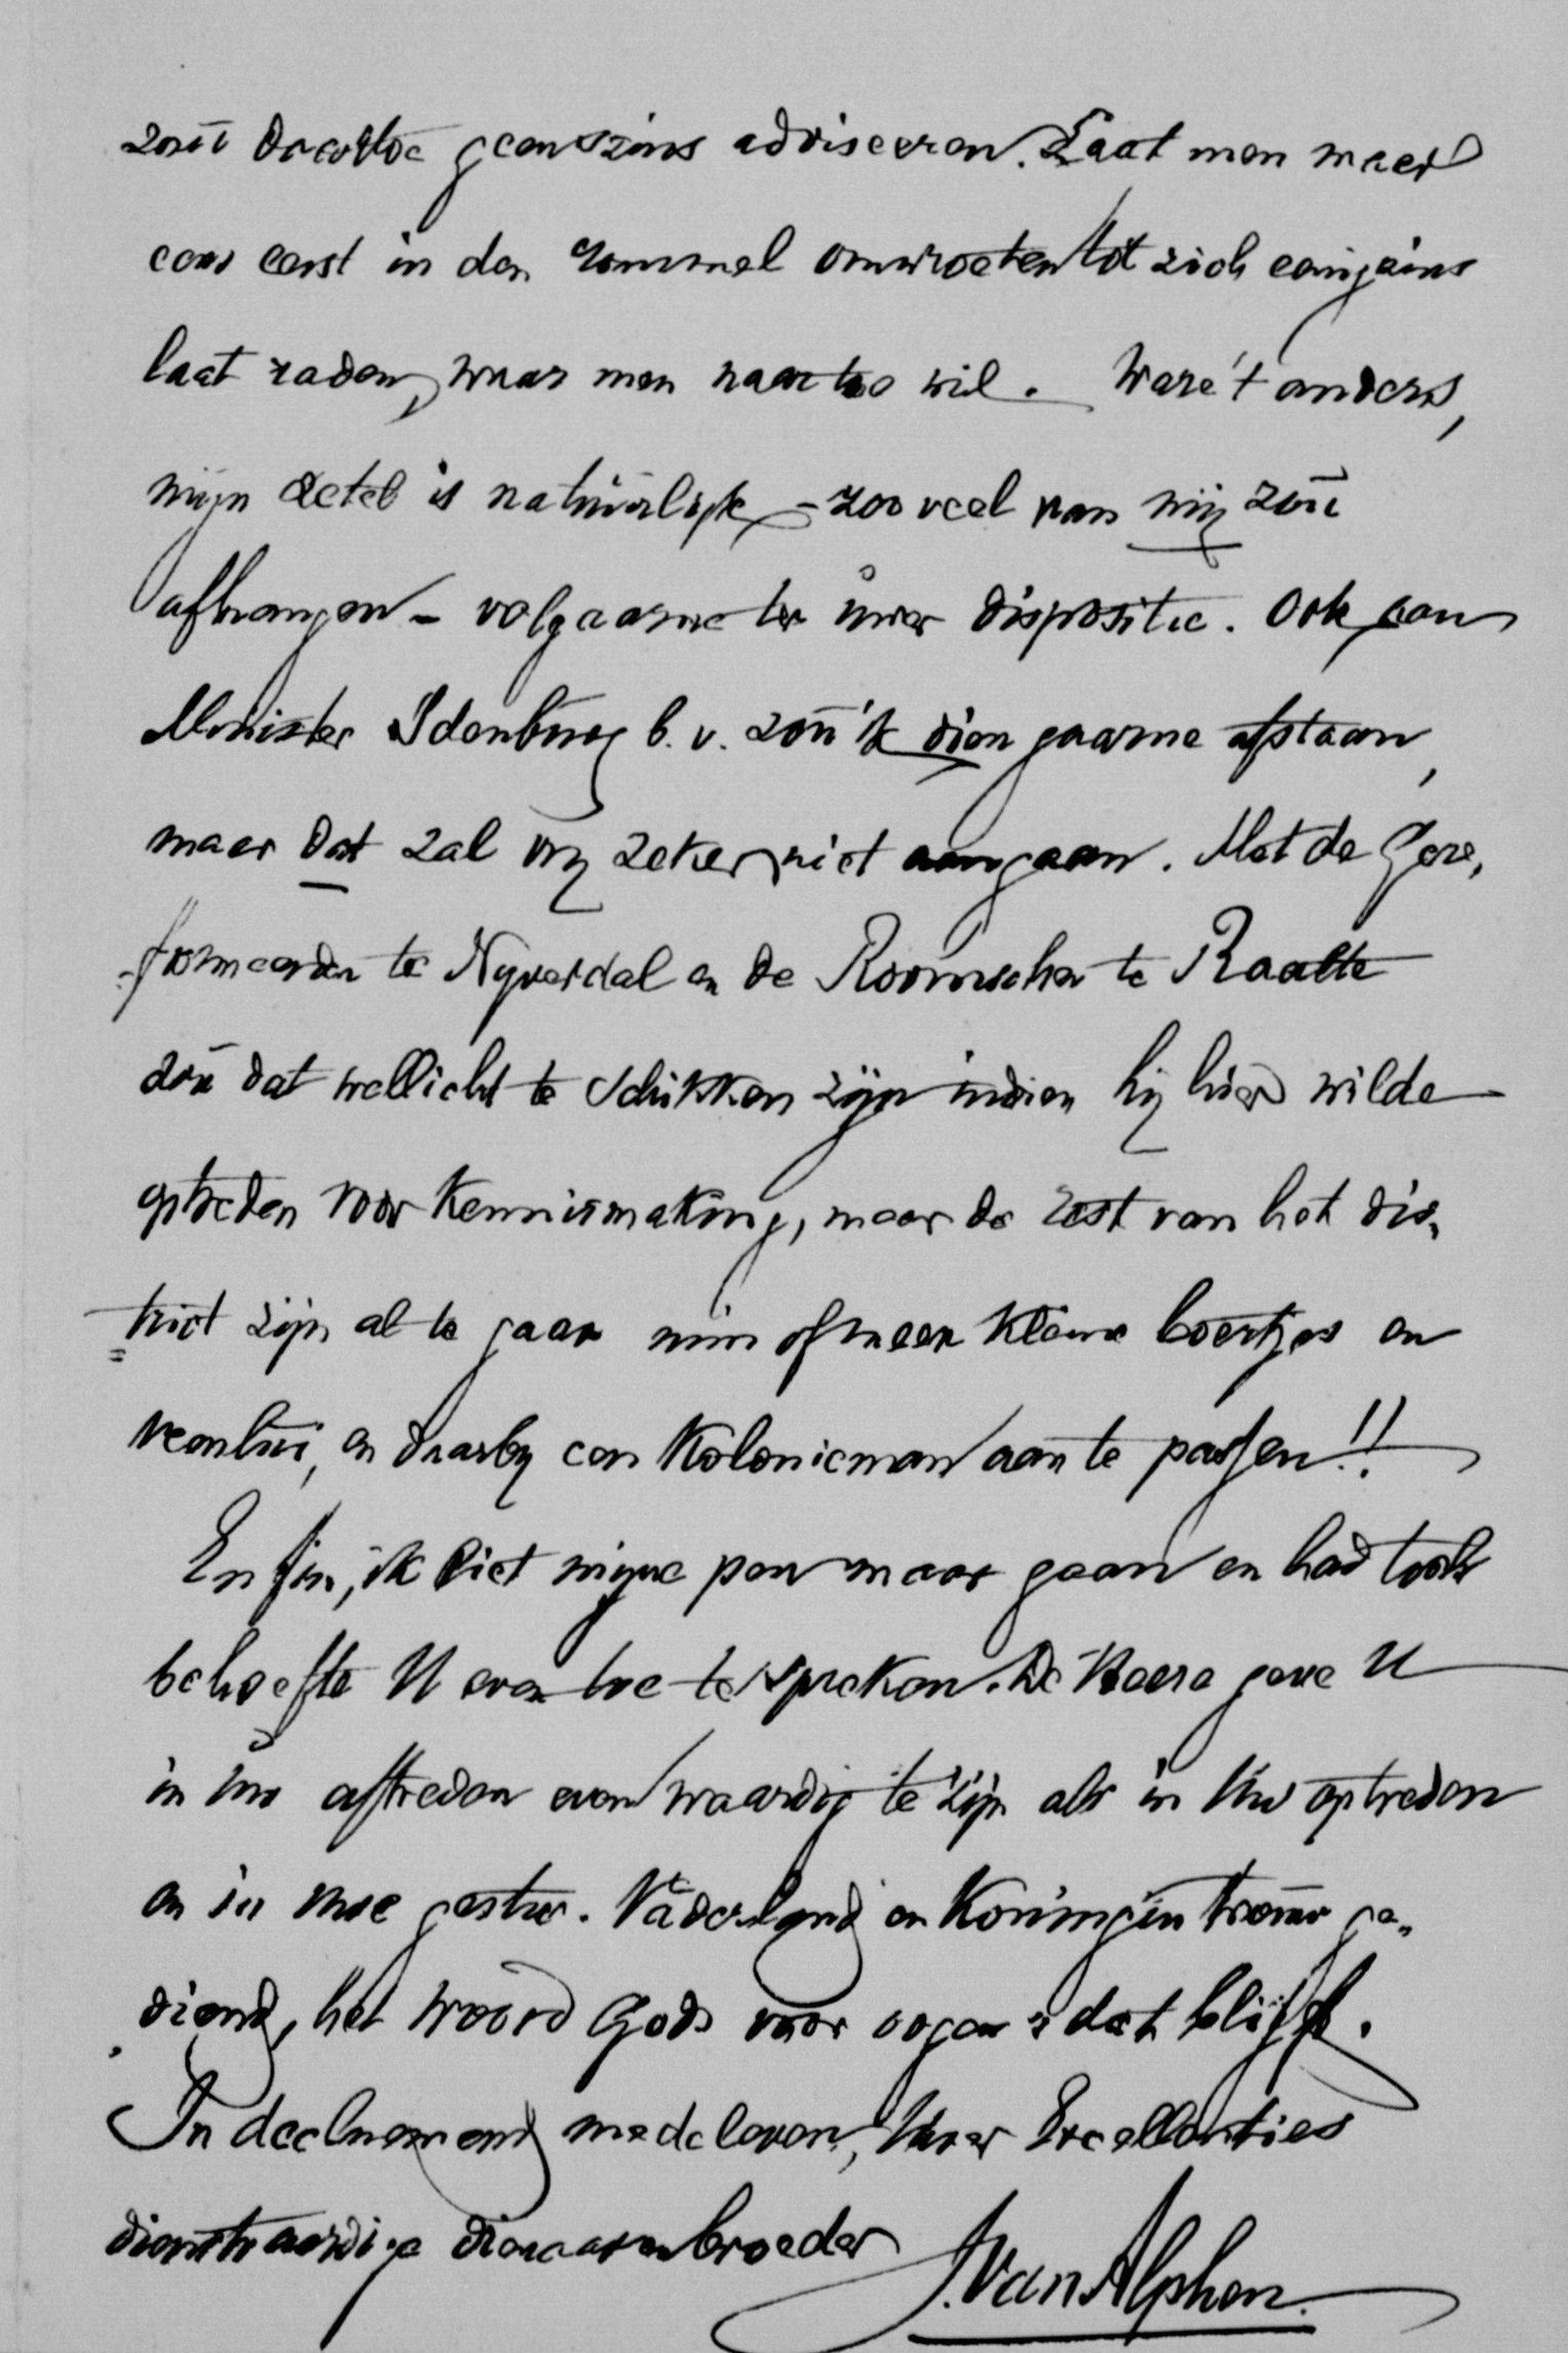 zou daartoe geenszins adviseeren. Laat men maar
eens eerst in den rommel omwroeten tot zich eenigzins
laat raden, waar men naar toe wil. Ware 't anders,
mijn zetel is natuurlijk – zooveel van mij zou
afhangen – volgaarne ter uwer dispositie. Ook aan
Minister Idenburg b.v. zou 'k dien gaarne afstaan,
maar dat zal vrij zeker niet aangaan. Met de Gere„
„formeerden te Nyverdal en de Roomschen te Raalte
zou dat wellicht te schikken zijn indien hij hier wilde
optreden voor kennismaking, maar de rest van het dis„
trict zijn al te gaar min of meer kleine boertjes en
veenlui, en daarby een Koloniceman aan te passen!!
Enfin, ik liet mijne pen maar gaan en had toch
behoefte U even toe te spreken. De Heere geve U
in Uw aftreden even waardig te zijn als in Uw optreden
en in Uwe gestie. Vaderland en Koningin trouw ge„
diend, het woord Gods voor oogen & dat blijft.
In deelnemend medeleven, Uwer Excellenties
dienstvaardige dienaar en broeder
J. van Alphen.